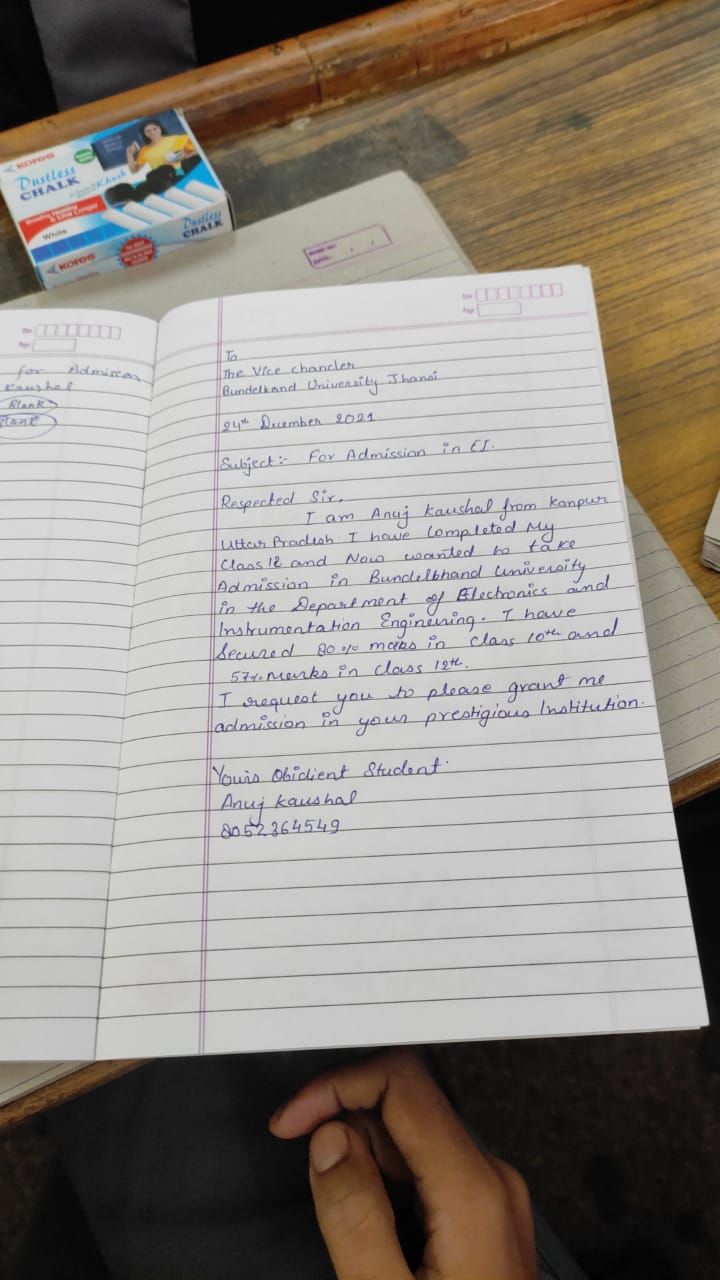 Kores
Dustless
CHALK
Khush
Breathe Healthy
& Live Longer
White
Dustless
CHALK
Kores
DATE:
Date
Page
for Admission
Kaushal
Blank
Blank
Date
Page
To
The Vice chancler
Bundelkand University Jhansi
24th December 2021
Subject:- For Admission in EI.
Respected Sir,
I am Anuj Kaushal from Kanpur
Uttar Pradesh. I have Completed My
Class 12 and Now wanted to take
Admission in Bundelbhand University
in the Department of Electronics and
Instrumentation Engineering. I have
Secured 80% marks in Class 10th and
57% Marks in Class 12th.
I request you to please grant me
admission in your prestigious Institution.
Yours Obidient Student.
Anuj Kaushal
8052364549